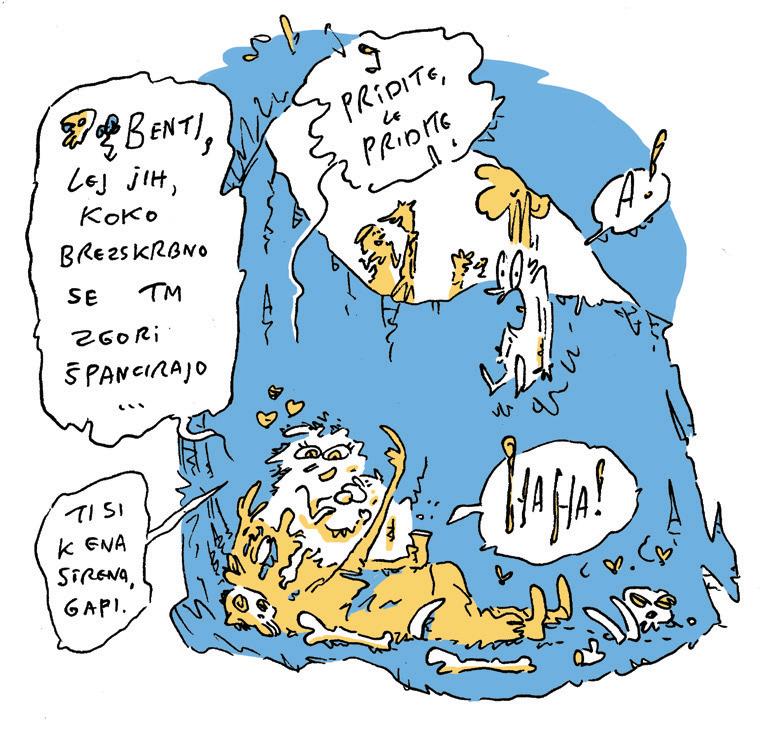 PRIDITE,
LE
PRIDITE!
A!
BENTI,
LEJ JIH,
KOKO
BREZSKRBNO
SE TM
ZGORI
ŠPANCIRAJO
...
TI SI
K ENA
SIRENA,
GAPI.
HA HA!